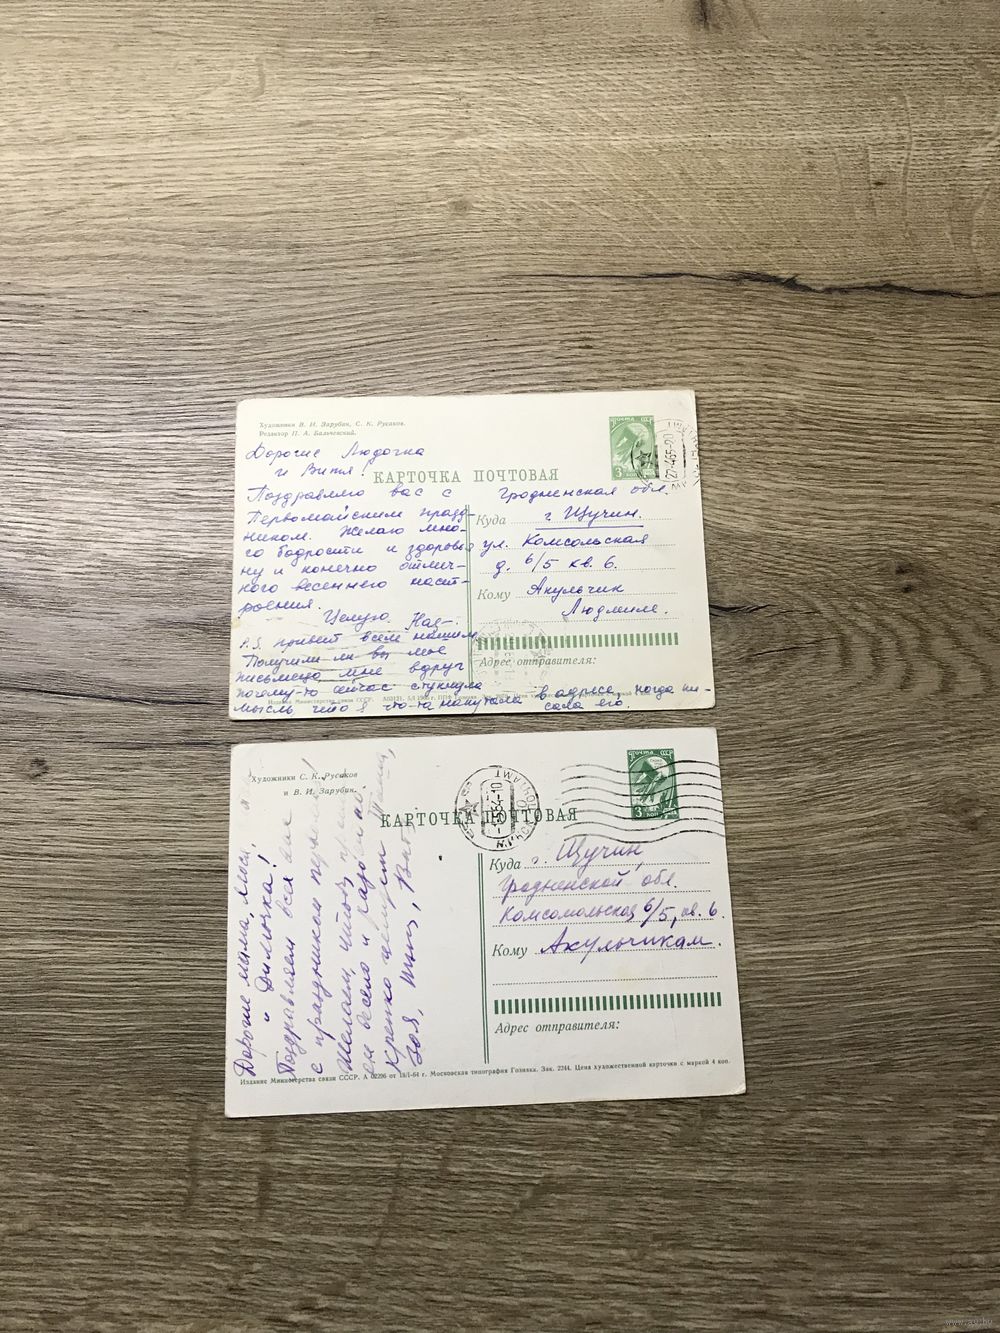 Художники В. И. Зарубин, С. К. Русаков.
Редактор П. А. Бальчевский.
Дорогие Людочка
и Витя!
Поздравляю вас с
Первомайским празд-
ником. Желаю мно-
го бодрости и здоровья
ну и конечно отлич-
ного весеннего наст-
роения.
Целую Над-
P.S. привет всем нашим
Получили ли вы мое
письмецо, мне вдруг
почему-то сейчас стукнула
мысль что я что-то напутала в адресе, когда пи-
сала его.
КАРТОЧКА ПОЧТОВАЯ
ПОЧТА СССР
3
Гродненская обл.
Куда г. Щучин.
ул. Комсольская
д. 6/5 кв. 6.
Кому Акульчик
Людмиле.
Адрес отправителя:
Издание Министерства связи СССР.
Художники С. К. Русаков
и В. И. Зарубин.
Дорогие мама,
и Димочка!
Поздравляем всех вас
с праздником
Желаем, чтобы
его весело и радостно.
Крепко целуем
Зоя,
КАРТОЧКА ПОЧТОВАЯ
ПОЧТА СССР
3 КОП
ПОЧТАМТ
Куда г. Щучин,
Гродненской обл.
Комсомольская 6/5, кв. 6.
Кому Акульчикам.
Адрес отправителя:
Издание Министерства связи СССР. А 02296 от 18/I-64 г. Московская типография Гознака. Зак. 2244. Цена художественной карточки с маркой 4 коп.
www.ay.by